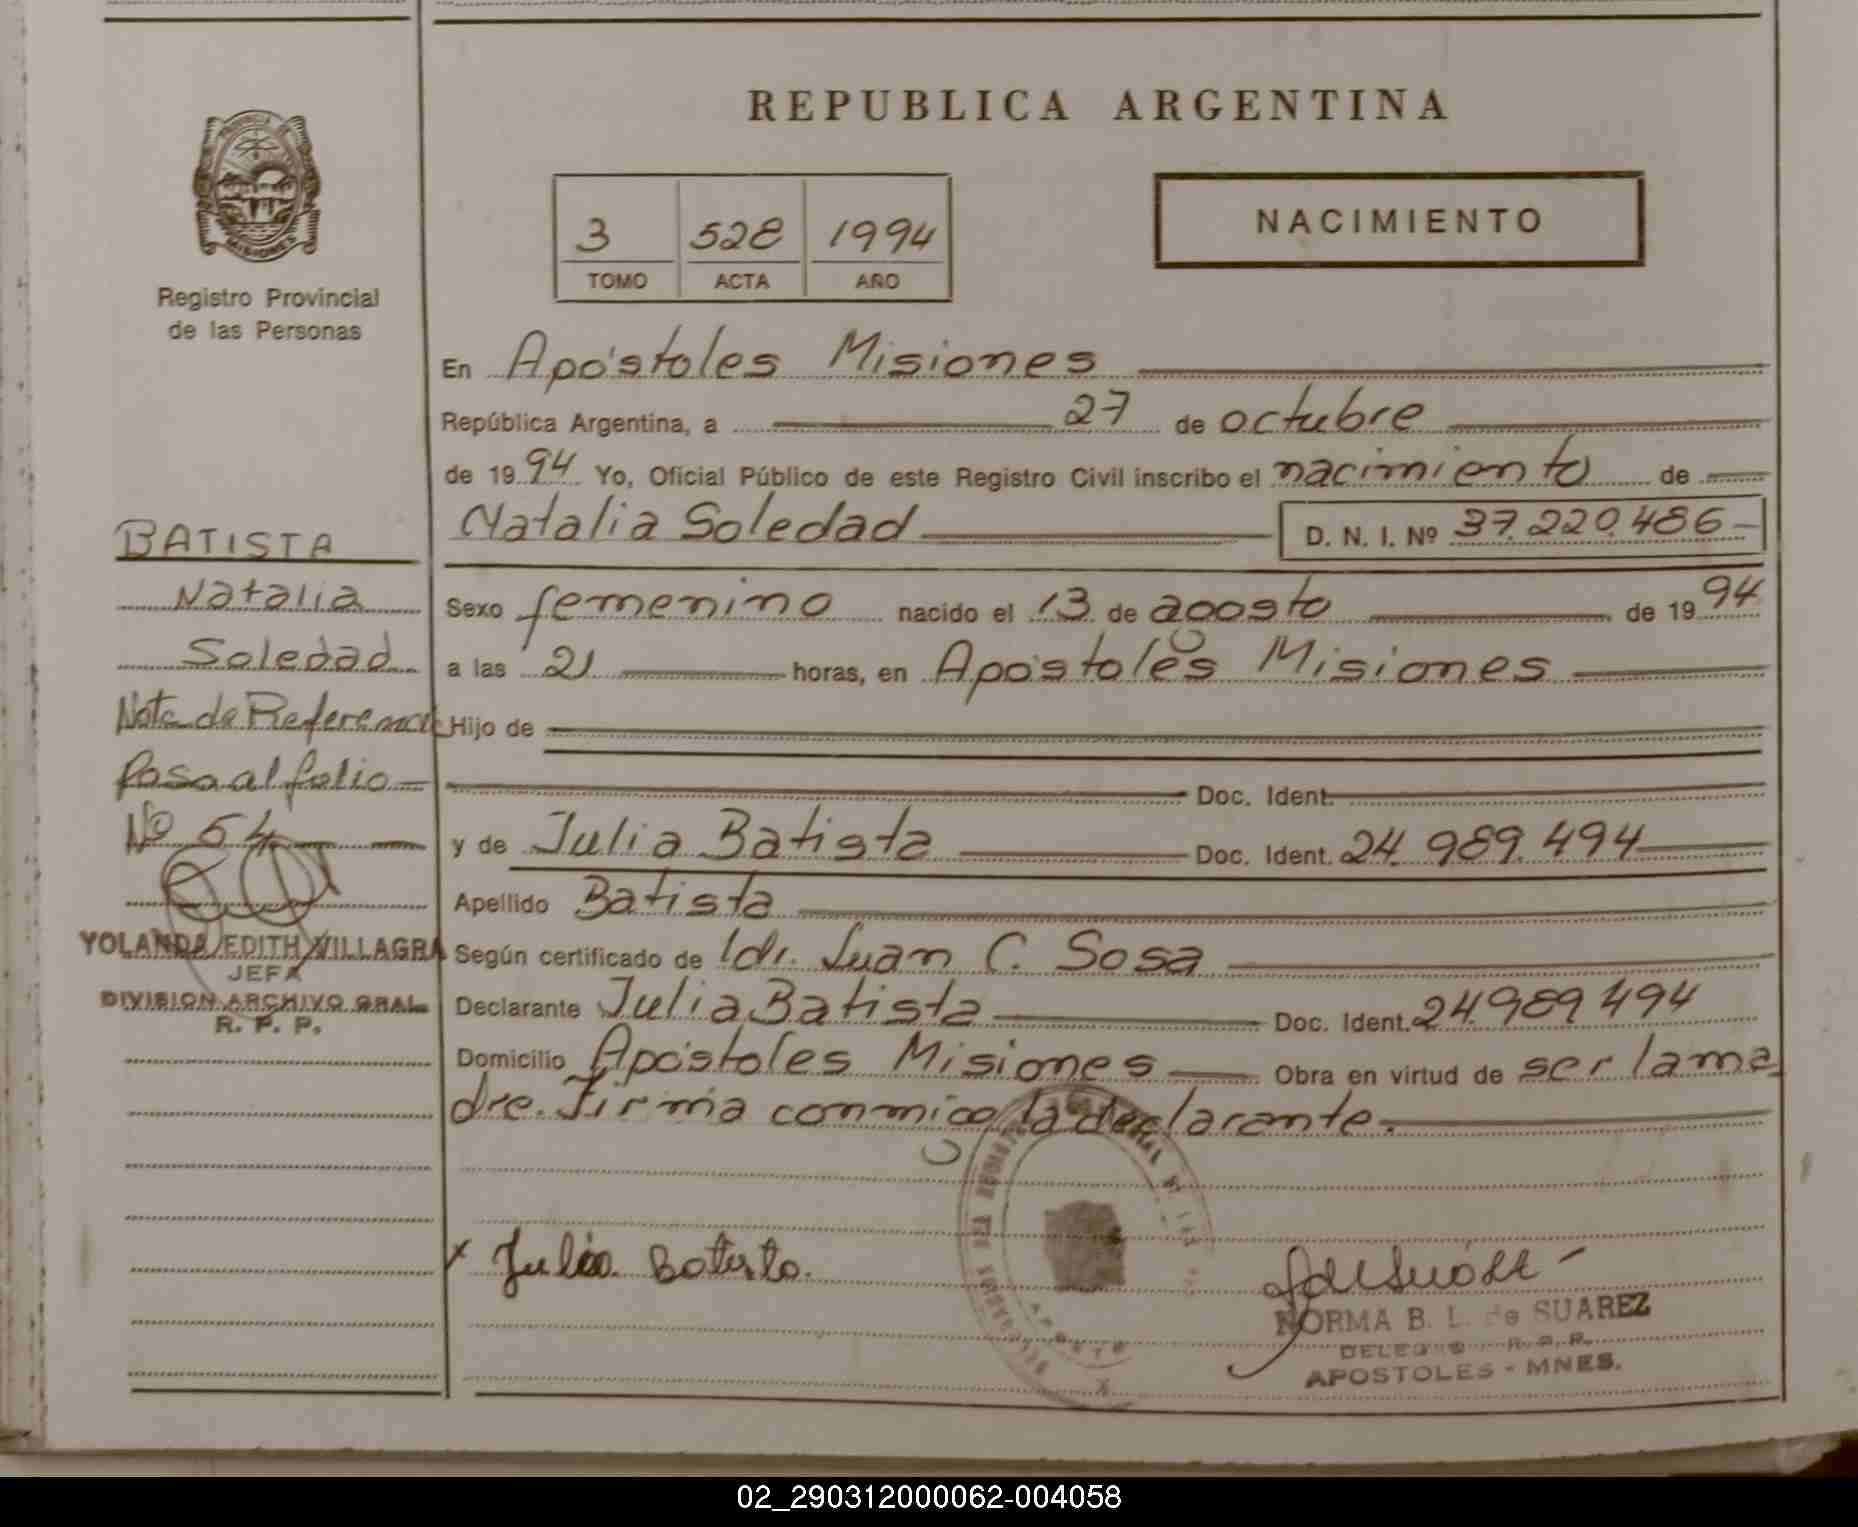 REPUBLICA ARGENTINA
PROVINCIA DE
MISIONES
Registro Provincial
de las Personas
3 528 1994
TOMO ACTA AÑO
NACIMIENTO
En Apóstoles Misiones
República Argentina, a 27 de octubre
de 1994 Yo, Oficial Público de este Registro Civil inscribo el nacimiento de
Natalia Soledad D. N. I. Nº 37.220.486
Sexo femenino nacido el 13 de agosto de 1994
a las 21 horas, en Apóstoles Misiones
Hijo de
Doc. Ident.
y de Julia Batista Doc. Ident. 24.989.494
Apellido Batista
Según certificado de Juan C. Sosa
Declarante Julia Batista Doc. Ident. 24989494
Domicilio Apóstoles Misiones Obra en virtud de ser la ma
dre. Firma conmigo la declarante.
Julia Batista.
NORMA B. L. de SUAREZ
R. P. P.
APOSTOLES - MNES.
BATISTA
Natalia
Soledad
Nota de Referencia
Pasa al folio
Nº 54
YOLANDA EDITH VILLAGRA
JEFA
DIVISION ARCHIVO GRAL.
R. P. P.
02_290312000062-004058